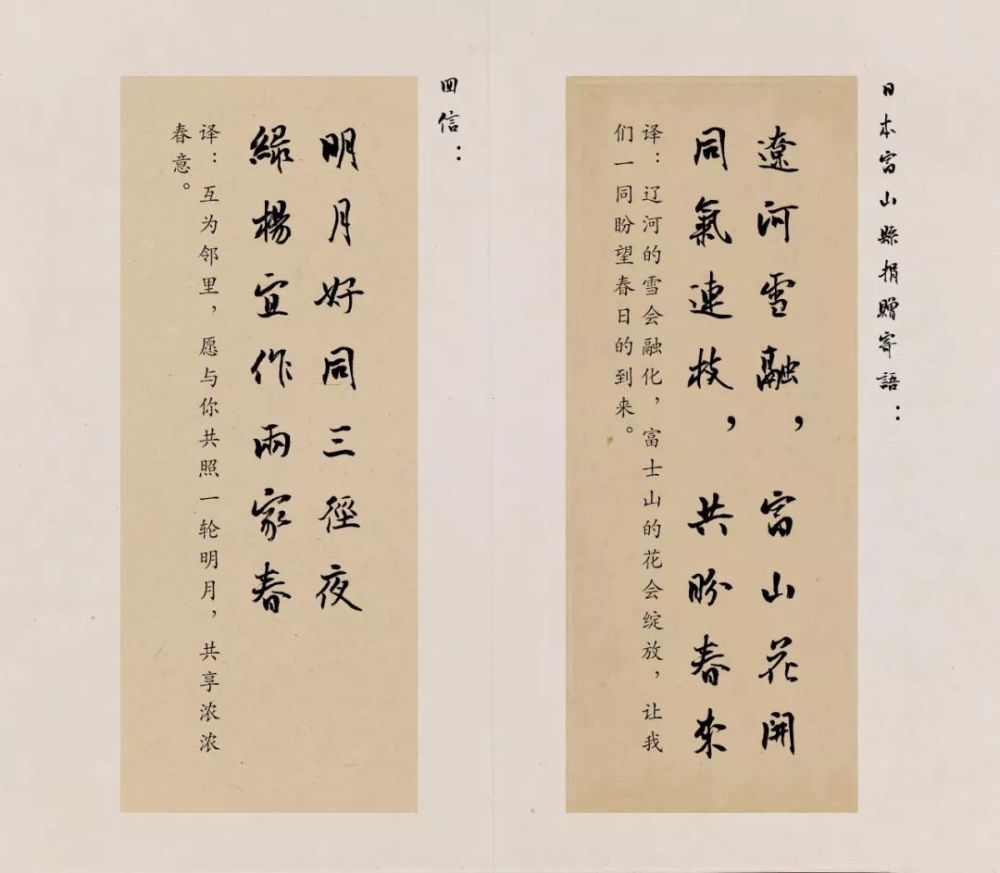 日本富山縣捐贈寄語：
遼河雪融，富山花開
同氣連枝，共盼春來
译：辽河的雪会融化，富士山的花会绽放，让我
们一同盼望春日的到来。
回信：
明月好同三徑夜
綠楊宜作兩家春
译：互为邻里，愿与你共照一轮明月，共享浓浓
春意。